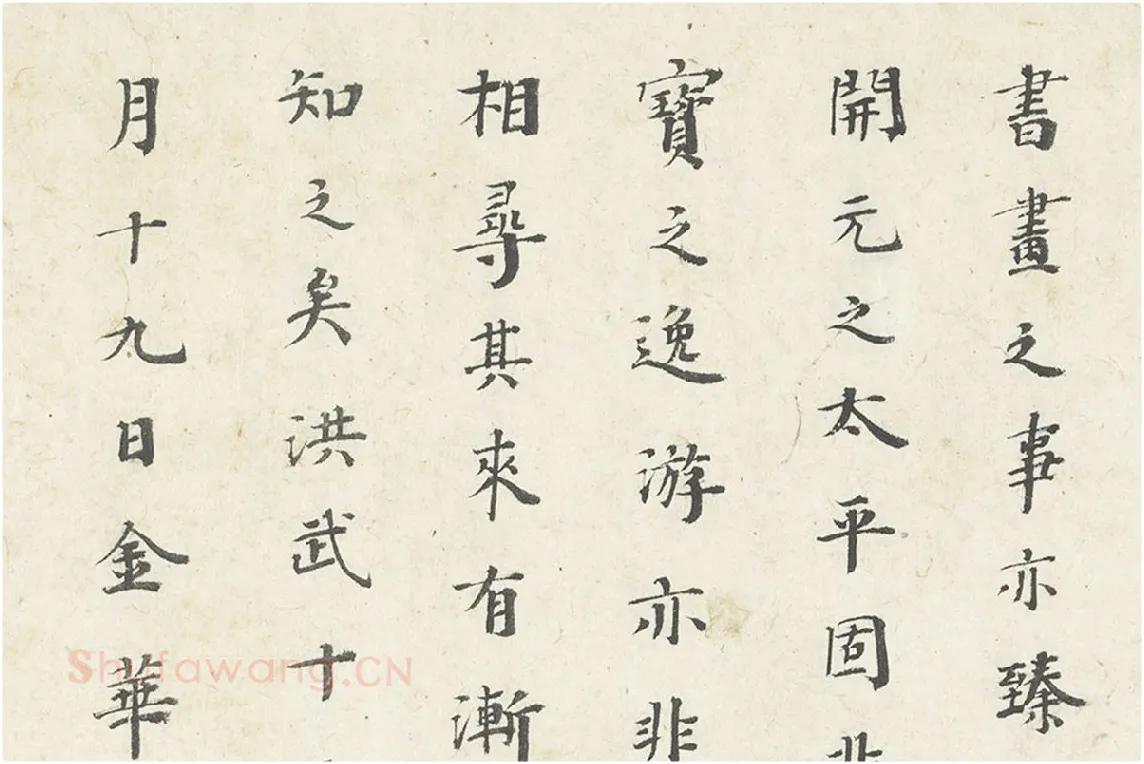 書畫之事亦臻
開元之太平固非
寶之逸游亦非
相尋其來有漸
知之矣洪武十
月十九日金華
Shufawang.CN